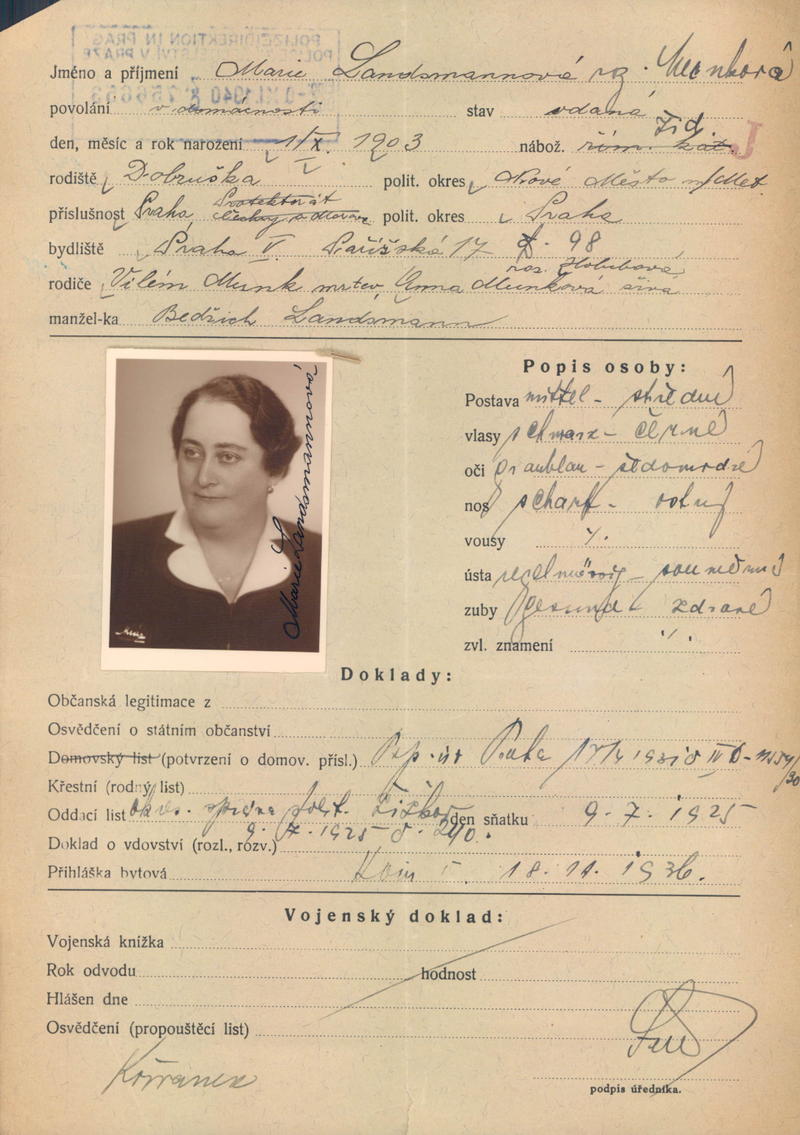 POLIZEIDIREKTION IN PRAG
V PRAZE
Jméno a příjmení Marie Landsmannová roz. Munková
povolání v domácnosti stav vdaná
žid.
den, měsíc a rok narození 1/X. 1903 nábož. řím. kat. J
V
rodiště Dobruška polit. okres Nové Město n/Met.
příslušnost Praha Protektorát Čechy a Morava polit. okres Praha
bydliště Praha V. Pařížská 17 98
roz.
rodiče Vilém Munk mrtev, Anna Munková živa
manžel-ka Bedřich Landsmann
Marie Landsmannová
Popis osoby:
Postava mittel - střední
vlasy schwarz - černé
oči graublau - šedomodré
nos scharf - ostrý
vousy
ústa regelmässig - souměrná
zuby gesund - zdravé
zvl. znamení
Doklady:
Občanská legitimace z
Osvědčení o státním občanství
Domovský list (potvrzení o domov. přísl.) Praha
Křestní (rodný list)
Oddací list okr. správa polit. Žižkov den sňatku 9. 7. 1925
9. 7. 1925 č. 290.
Doklad o vdovství (rozl., rozv.)
Přihláška bytová Kom V. 18. 11. 1936.
Vojenský doklad:
Vojenská knížka
Rok odvodu hodnost
Hlášen dne
Osvědčení (propouštěcí list)
podpis úředníka.